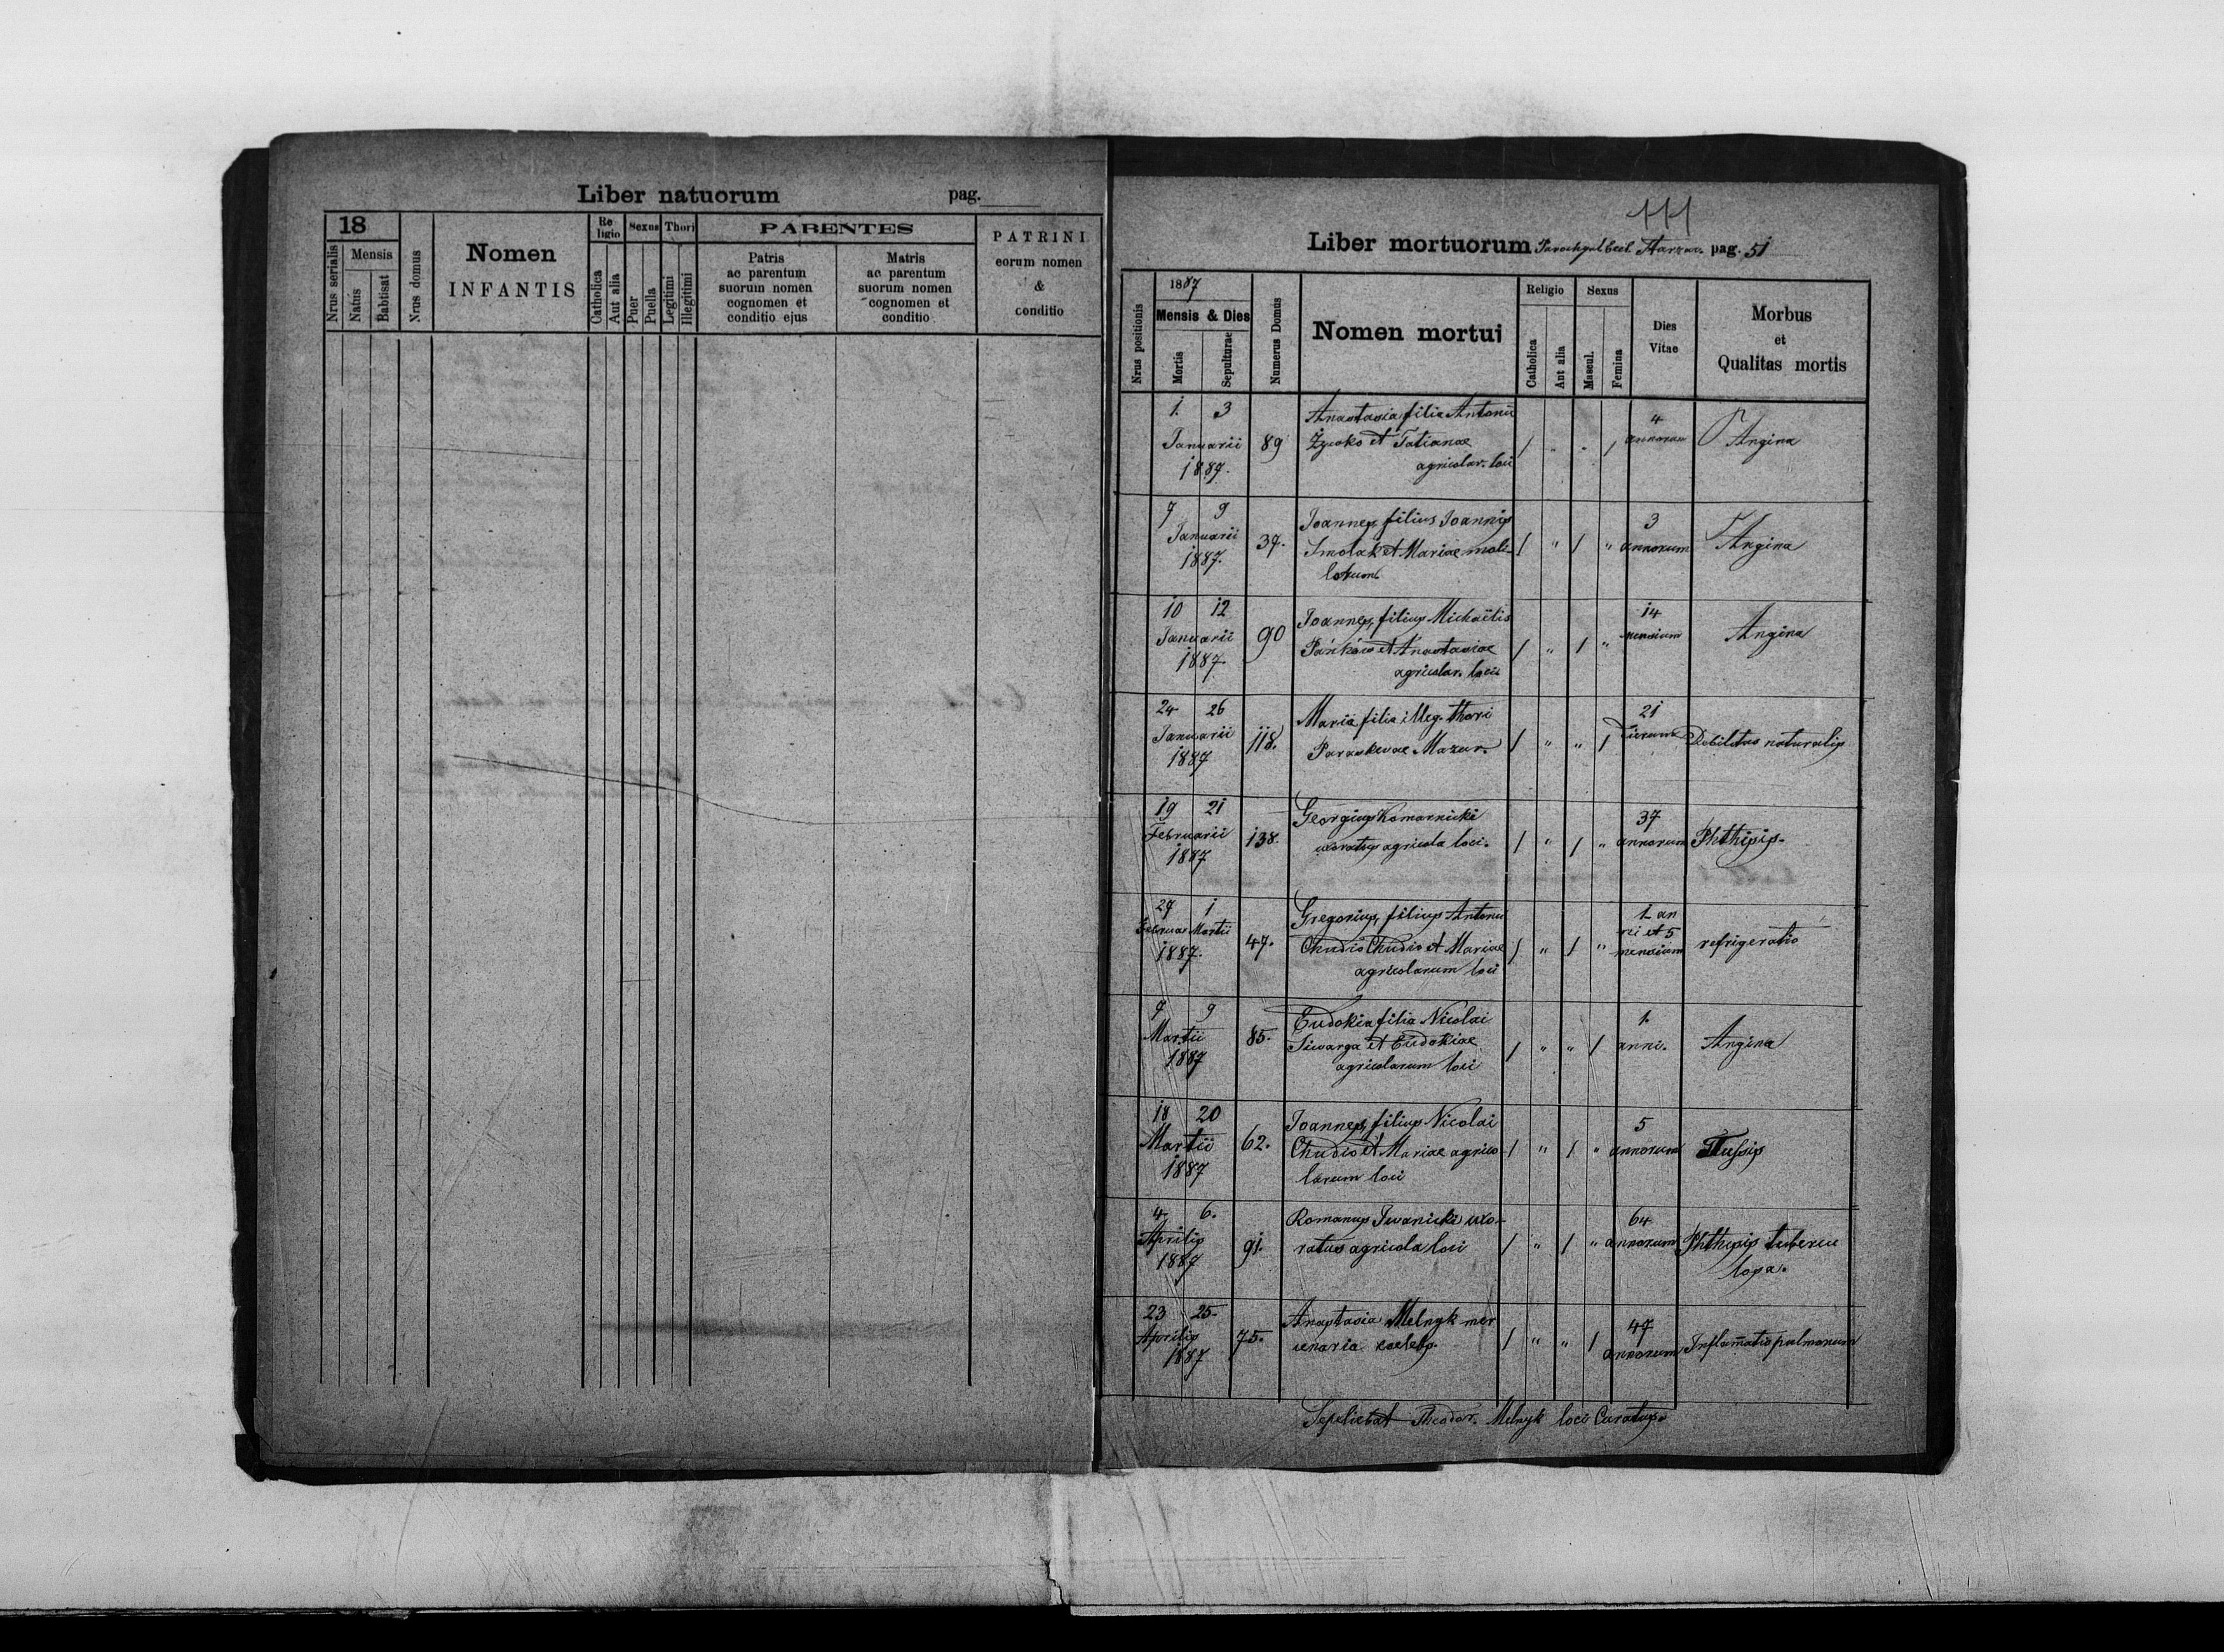 Liber natuorum pag.
18
Nrus serialis
Mensis
Natus
Babtisat
Nrus domus
Nomen
INFANTIS
Religio
Catholica
Aut alia
Sexus
Puer
Puella
Thori
Legitimi
Illegitimi
PARENTES
Patris
ac parentum
suorum nomen
cognomen et
conditio ejus
Matris
ac parentum
suorum nomen
cognomen et
conditio
PATRINI
eorum nomen
&
conditio
111
Liber mortuorum pag. 51
Nrus positionis
1887
Mensis & Dies
Mortis
Sepulturae
Numerus Domus
Nomen mortui
Religio
Catholica
Aut alia
Sexus
Mascul.
Femina
Dies
Vitae
Morbus
et
Qualitas mortis
1. 3
Januarii
1887.
89
Anastasia filia Antonii
Zysko et Tatianae
agricolar. loci
/ " " /
4
annorum
Angina
7 9
Januarii
1887.
37.
Joannes, filius Joannis
Smolak et Mariae moli-
torum
/ " / "
3
annorum
Angina
10 12
Januarii
1887.
90
Joannes, filius Michaëlis
Pańkow et Anastasiae
agricolar. loci.
/ " / "
14
mensium
Angina
24 26
Januarii
1887
118.
Maria filia illeg. thori
Paraskevae Mazur.
/ " " /
21
dierum
Debilitas naturalis
19 21
Februarii
1887
138.
Georgius Komarnicki
uxoratus agricola loci.
/ " / "
37
annorum
Phthisis.
27 1
Februar Martii
1887.
47.
Gregorius, filius Antonii
Chudio Chudio et Mariae
agricolarum loci
/ " / "
1 an
ni et 5
mensium
refrigeratio
7 9
Martii
1887
85.
Eudokia filia Nicolai
Siwarga et Eudokiae
agricolarum loci
/ " " /
1.
anni.
Angina
18 20
Martii
1887
62.
Joannes, filius Nicolai
Chudio et Mariae agrico-
larum loci
/ " / "
5
annorum
Tussis
4. 6.
Aprilis
1887
91.
Romanus Iwanicki uxo-
ratus agricola loci
/ " / "
64
annorum
Phthisis tubercu
losa.
23 25.
Aprilis
1887
75.
Anastasia Melnyk mer
cenaria caelebs.
/ " " /
47
annorum
Inflamatio pulmonum
Sepeliebat Theodor. Melnyk loci Curatus.